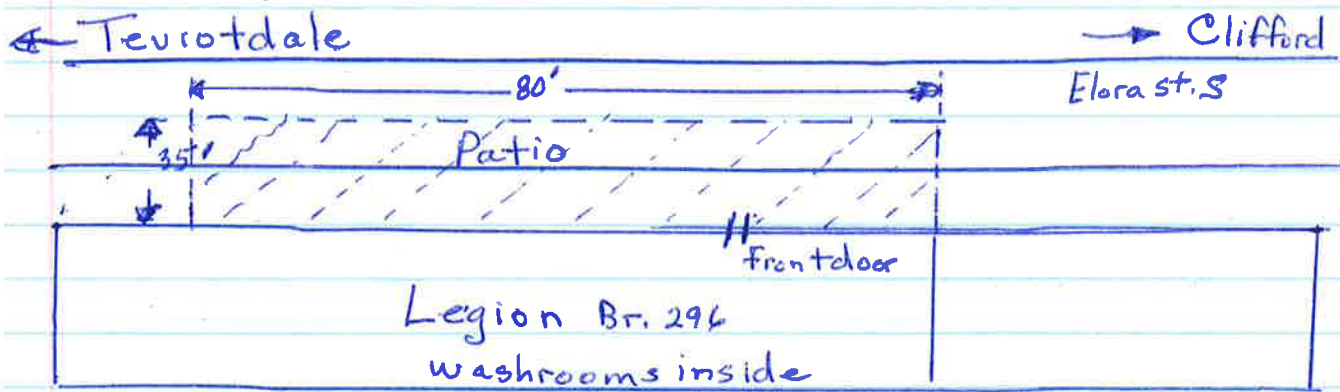 ← Teviotdale → Clifford
80' Elora st. S
35' Patio
front door
Legion Br. 296
washrooms inside